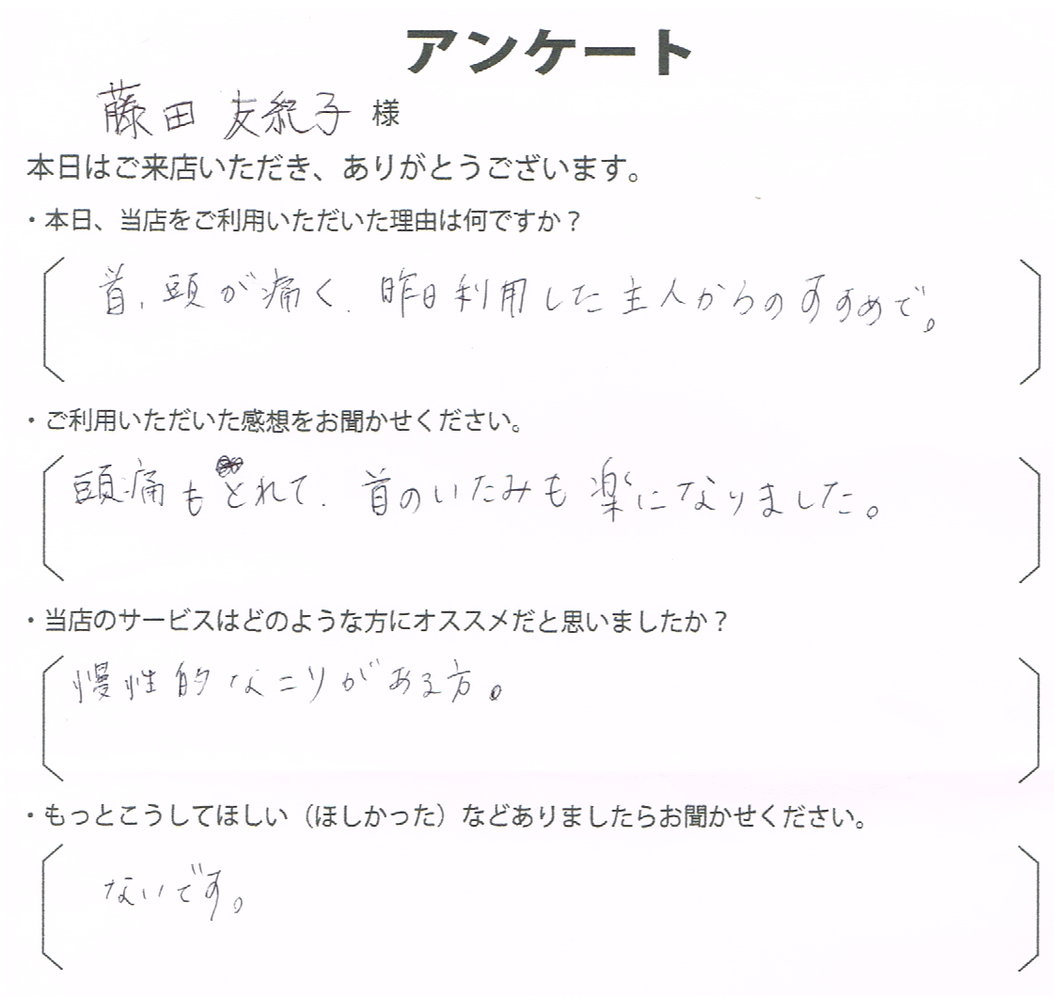 アンケート
藤田 友紀子 様
本日はご来店いただき、ありがとうございます。
・本日、当店をご利用いただいた理由は何ですか？
首、頭が痛く、昨日利用した主人からのすすめで。
・ご利用いただいた感想をお聞かせください。
頭痛もとれて、首のいたみも楽になりました。
・当店のサービスはどのような方にオススメだと思いましたか？
慢性的なこりがある方。
・もっとこうしてほしい（ほしかった）などありましたらお聞かせください。
ないです。